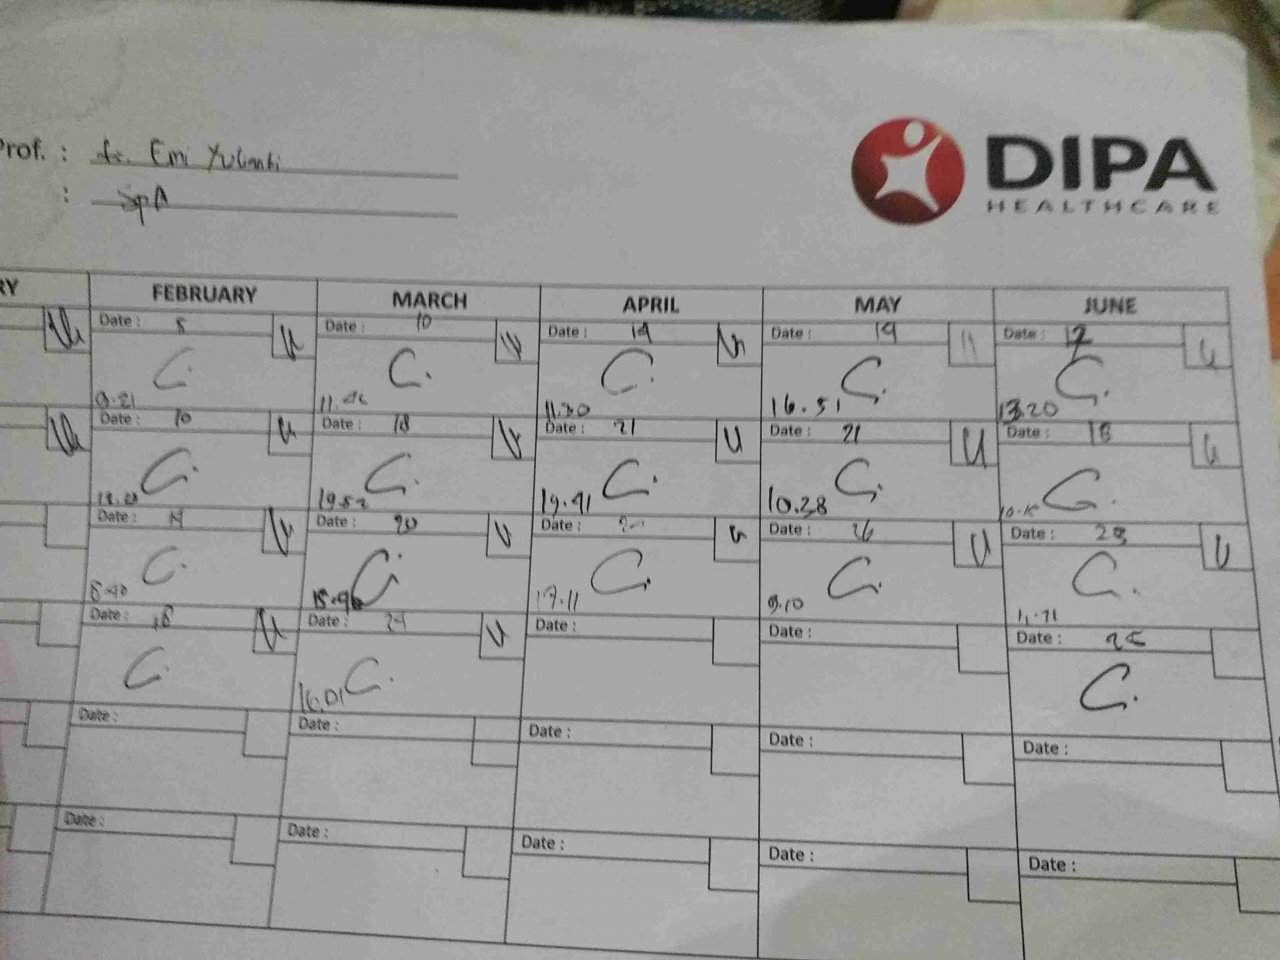 Prof. : dr. Emi Yulianti
: SpA
DIPA
HEALTHCARE
RY FEBRUARY MARCH APRIL MAY JUNE
Date : 5 Date : 10 Date : 19 Date : 19 Date : 17
C. C. C. C. C.
9.21 11. 11.30 16.51 13.20
Date : 10 Date : 18 Date : 21 Date : 21 Date : 18
C. C. C. C. C.
19.52 19.41 10.38 10.15
Date : Date : 20 Date : Date : 26 Date : 23
C. C. C. C. C.
8.40 15.46 17.11 9.10
Date : 18 Date : 24 Date : Date : Date : 25
C. C. C.
16.01
Date : Date : Date : Date : Date :
Date : Date : Date : Date : Date :